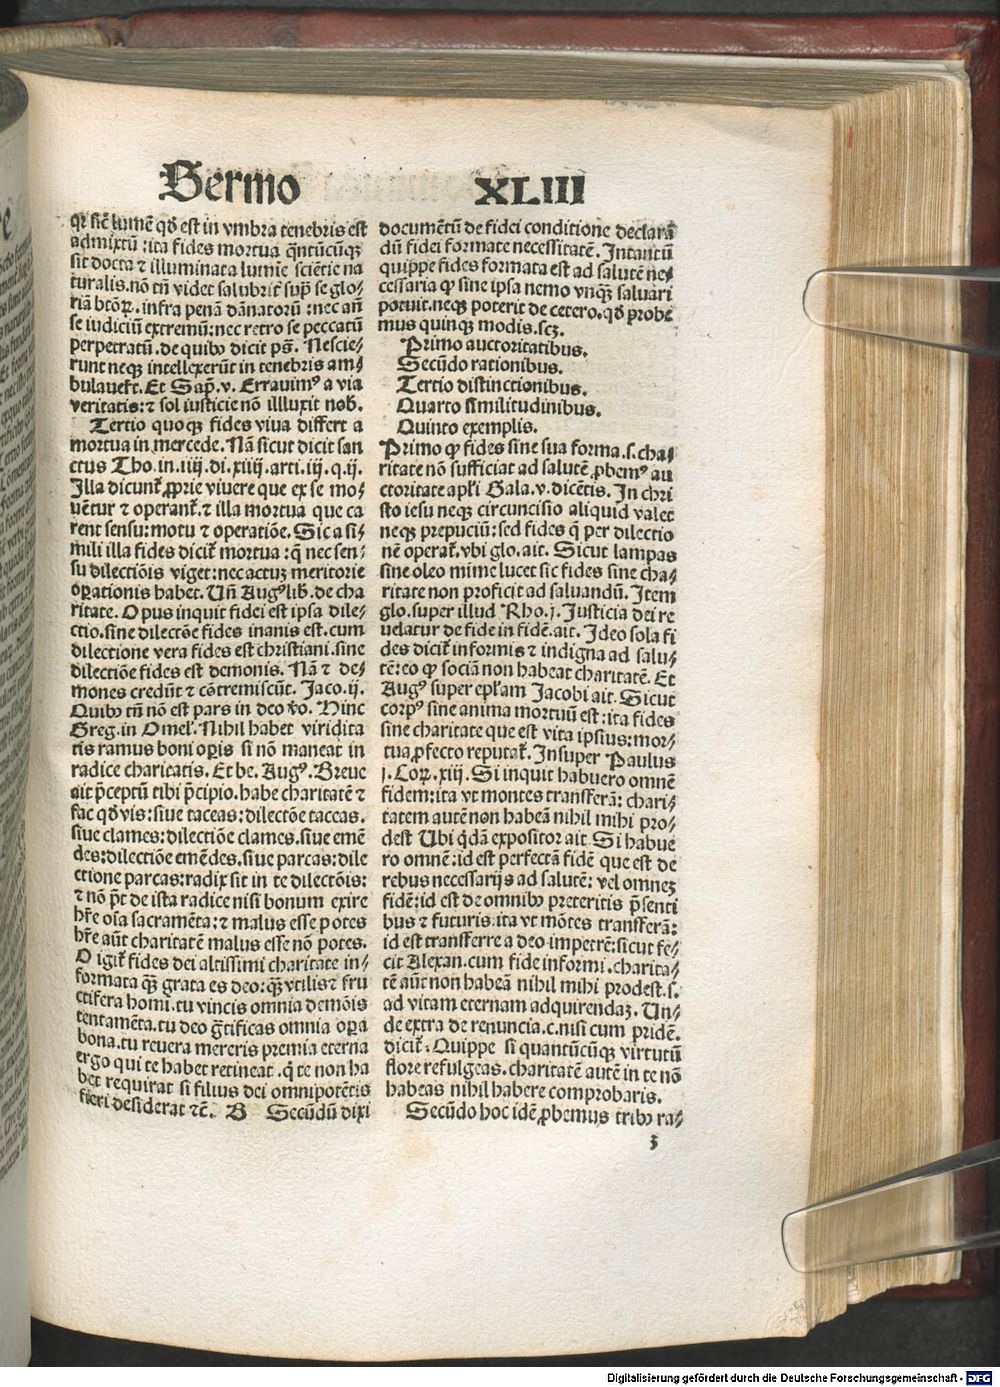 Sermo XLIII
qꝛ sicut lumē qđ est in vmbra tenebris est
admixtū: ita fides mortua q̄ntūcūqꝫ
sit docta ⁊ illuminata lumīe sciētie na
turalis. nō tn̄ videt salubriť supꝛ se glo⸗
riā btōꝝ. infra penā dānatoꝛū: nec an̄
se iudiciū extremū: nec retro se peccatū
perpetratū. de quibꝰ dicit pš. Nescie⸗
runt neqꝫ intellexerūt in tenebris am⸗
bulaueřt. Et Sap̄. v. Errauimꝰ a via
veritatis: ⁊ sol iusticie nō illluxit nob̄.
Tertio quoqꝫ fides viua differt a
mortua in mercede. Nā sicut dicit san
ctus Tho. in. iiij. di. xiiij. arti. iij. q. ij.
Illa dicunť ꝓprie viuere que ex se mo⸗
uētur ⁊ operanť. ⁊ illa mortua que ca
rent sensu: motu ⁊ operatiōe. Sic a si⸗
mili illa fides diciť mortua: q̄ nec sen⸗
su dilectiōis viget: nec actuꝫ meritorie
oꝑationis habet. Vn̄ Augꝰ lib. de cha
ritate. Opus inquit fidei est ipsa dile⸗
ctio. sine dilectōe fides inanis est. cum
dilectione vera fides est christiani. sine
dilectiōe fides est demonis. Nā ⁊ de⸗
mones credūt ⁊ cōtremiscūt. Jaco. ij.
Quibꝰ tn̄ nō est pars in deo v̄o. Hinc
Greg. in Omeľ. Nihil habet viridita
tis ramus boni oꝑis si nō maneat in
radice charitatis. Et be. Augꝰ. Breue
ait p̄ceptū tibi p̄cipio. habe charitatē ⁊
fac qđ vis: siue taceas: dilectōe taceas.
siue clames: dilectiōe clames. siue emē
des: dilectiōe emēdes. siue parcas: dile
ctione parcas: radix sit in te dilectōis:
⁊ nō p̄t de ista radice nisi bonum exire
hr̄e oīa sacramēta: ⁊ malus esse potes
hr̄e aūt charitatē malus esse nō potes.
O igiť fides dei altissimi charitate in⸗
formata q̄ꝫ grata es deo: q̄ꝫ vtilis ⁊ fru
ctifera homī. tu vincis omnia demōis
tentamēta. tu deo ḡtificas omnia oꝑa
bona. tu reuera mereris premia eterna
ergo qui te habet retineat. q̄ te non ha
bet requirat si filius dei omnipotētis
fieri desiderat ⁊c̄. B Secūdū dixi
documētū de fidei conditione declarā
dū fidei formate necessitatē. Intantū
quippe fides formata est ad salutē ne⸗
cessaria ꝙ sine ipsa nemo vnqꝫ saluari
potuit. neqꝫ poterit de cetero. qđ probe
mus quinqꝫ modis. scꝫ.
Primo auctoritatibus.
Secūdo rationibus.
Tertio distinctionibus.
Quarto similitudinibus.
Quinto exemplis.
Primo ꝙ fides sine sua forma. s. cha⸗
ritate nō sufficiat ad salutē ꝓbemꝰ au
ctoritate apľi Gala. v. dicētis. In chri
sto iesu neqꝫ circuncisio aliquid valet
neqꝫ prepuciū: sed fides q̄ per dilectio
nē operať. vbi glo. ait. Sicut lampas
sine oleo mīme lucet sic fides sine cha⸗
ritate non proficit ad saluandū. Item
glo. super illud Rho. j. Justicia dei re
uelatur de fide in fidē. ait. Ideo sola fi
des diciť informis ⁊ indigna ad salu⸗
tē: eo ꝙ sociā non habeat charitatē. Et
Augꝰ super epľam Jacobi ait. Sicut
corpꝰ sine anima mortuū est: ita fides
sine charitate que est vita ipsius: mor⸗
tua ꝓfecto reputať. Insuper Paulus
j. Coꝝ. xiij. Si inquit habuero omnē
fidem: ita vt montes transferā: chari⸗
tatem autē non habeā nihil mihi pro⸗
dest Vbi q̄dā expositor ait. Si habue
ro omnē: id est perfectā fidē que est de
rebus necessarijs ad salutē: vel omneꝫ
fidē: id est de omnibꝰ preteritis p̄senti
bus ⁊ futuris. ita vt mōtes transferā:
id est transferre a deo impetrē: sicut fe⸗
cit Alexan. cum fide informi. charita⸗
tē aūt non habeā nihil mihi prodest. s.
ad vitam eternam adquirendaꝫ. Un⸗
de extra de renuncia. c. nisi cum pridē.
diciť. Quippe si quantūcūqꝫ virtutū
flore refulgeas. charitatē autē in te nō
habeas nihil habere comprobaris.
Secūdo hoc idē ꝓbemus tribꝰ ra⸗
ʒ
Digitalisierung gefördert durch die Deutsche Forschungsgemeinschaft - DFG